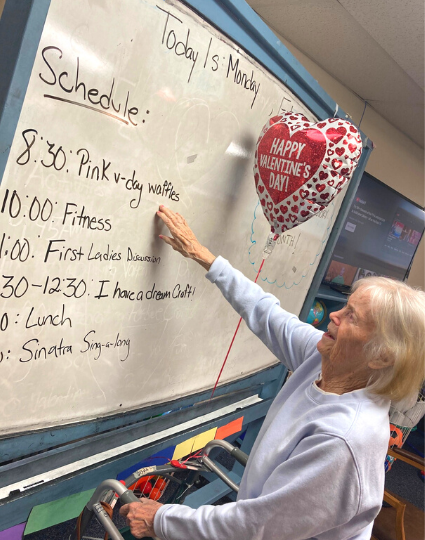 Today Is: Monday
Schedule:
8:30: Pink v-day waffles
10:00: Fitness
1:00: First Ladies Discussion
30-12:30: I have a dream Craft!
0: Lunch
: Sinatra Sing-a-long
HAPPY
VALENTINE'S
DAY!